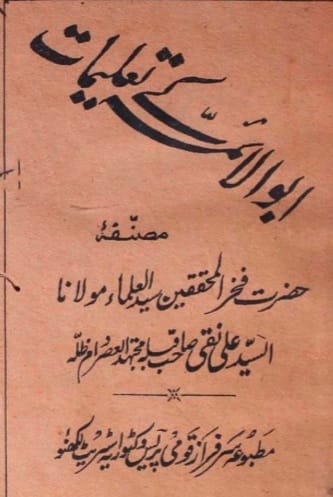 ابوالائمہؑ کی تعلیمات
مصنّفہٗ
حضرت فخر المحققین سید العلماء مولانا
السید علی نقی صاحب قبلہ مجتہد العصر دام ظلہ
مطبوعہ سرفراز قومی پریس وکٹوریہ اسٹریٹ لکھنؤ